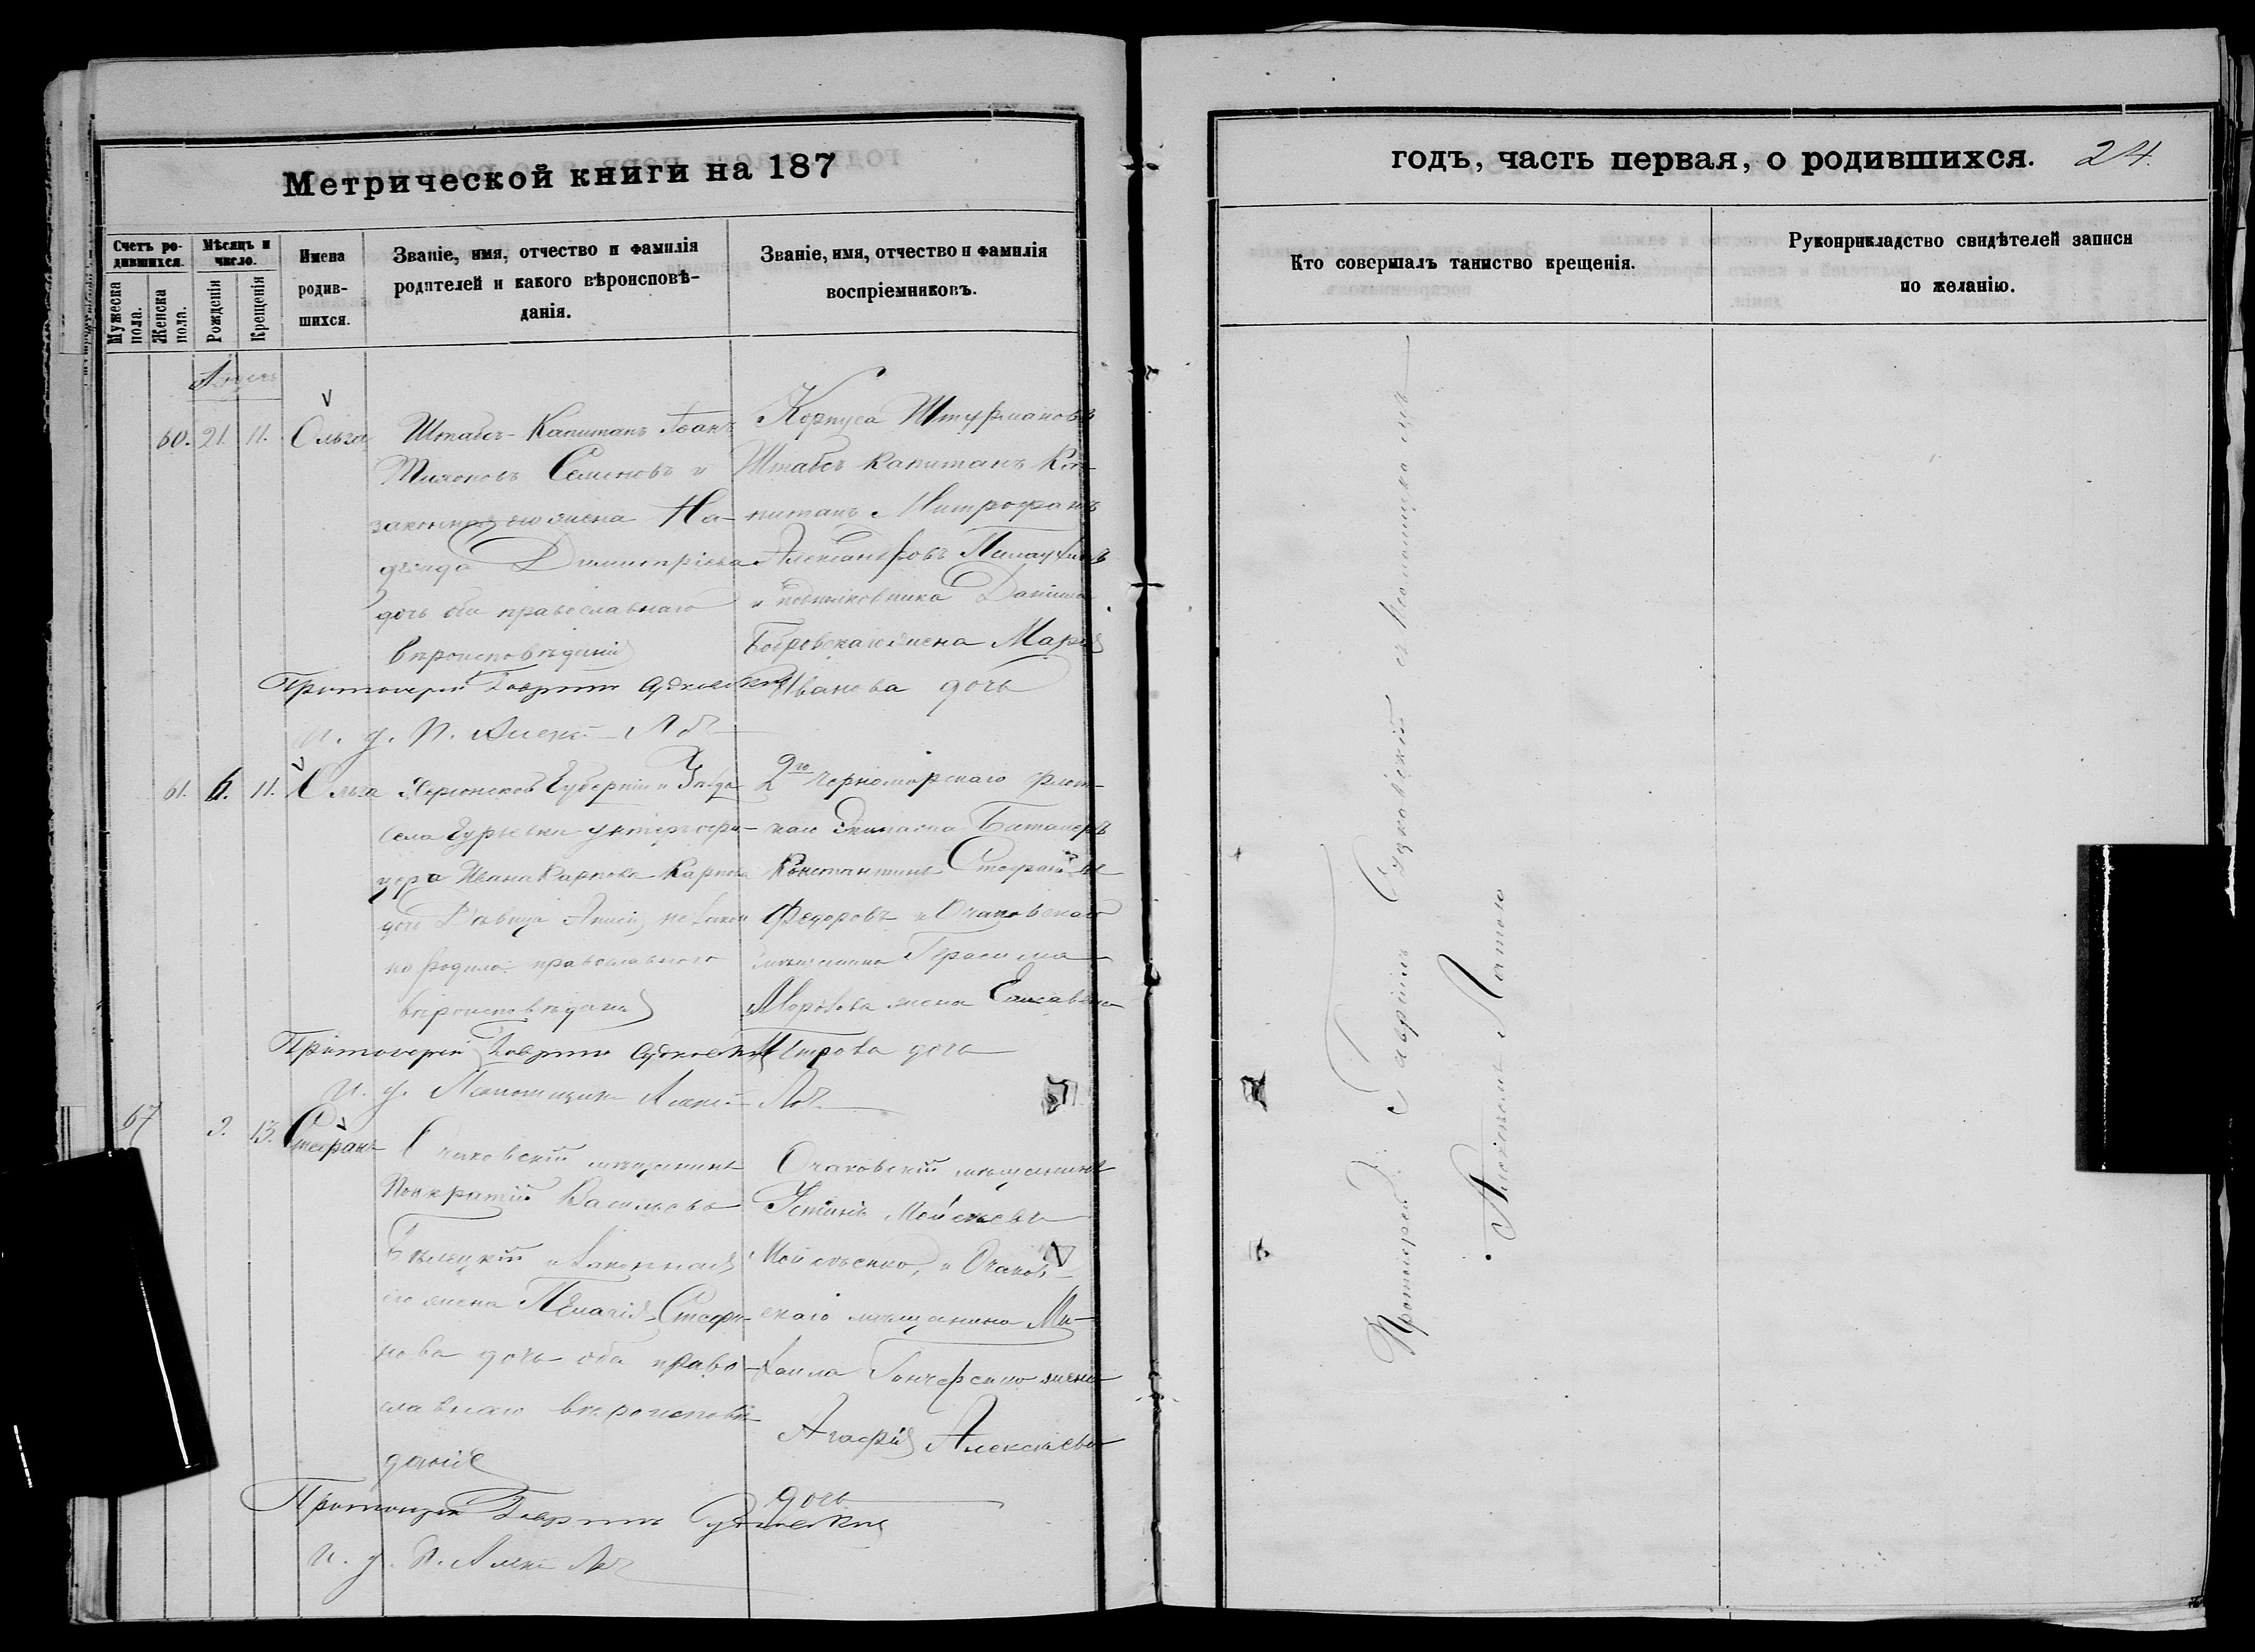 Метрической книги на 187
Счетъ ро-
дившихся.
Мѣсяцъ и
число.
Мужеска
пола.
Женска
пола.
Рожденія
Крещенія
Имена
родив-
шихся.
Званіе, имя, отчество и фамилія
родителей и какого вѣроисповѣ-
данія.
Званіе, имя, отчество и фамилія
воспріемниковъ.
60. 21. 11. Ольга
Штабсъ-Капитанъ Іоанъ
Семеновъ и
законная его жена На-
дежда Димитріева
дочь оба православнаго
вѣроисповѣданія
Корпуса Штурмановъ
Штабсъ Капитанъ Ка-
питанъ Митрофанъ
Александровъ
и подполковника Даніила
Бобровскаго жена Марія
Иванова дочь
Протоіерей Гавріилъ Судковскій
и. д. П. Алексѣй
61. 6. 11. Ольга
Херсонской Губерніи и Уѣзда
села Гурьевки унтеръ офи-
цера Ивана Карпова
дочь Дѣвица незакон
но родила православнаго
вѣроисповѣданія
2го Черноморскаго флот-
скаго Экипажа Баталеръ
Константинъ Стефановъ
Федоровъ и Очаковскаго
мѣщанина Герасима
Морозова жена Елисавета
Петрова дочь
Протоіерей Гавріилъ Судковскій
и. д. Псаломщика Алексѣй
67 9. 13. Стефанъ
Очаковскій мѣщанинъ
Панкратій Васильевъ
Бѣлецкій и законная
его жена Пелагія Стефа-
нова дочь оба право-
славнаго вѣроисповѣ-
данія
Очаковскій мѣщанинъ
Устинъ Мойсеевъ
Мойсѣенко, и Очаков-
скаго мѣщанина Ми-
хаила Гончаренко жена
Агафія Алексѣева
дочь
Протоіерей Гавріилъ Судковскій
и. д. П. Алексѣй
годъ, часть первая, о родившихся. 24.
Кто совершалъ таинство крещенія.
Рукоприкладство свидѣтелей записи
по желанію.
Протоіерей Гавріилъ Судковскій съ Псаломщикомъ
Алексѣемъ